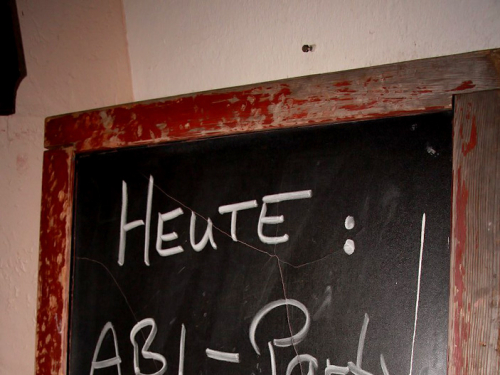 HEUTE:
ABI-Party